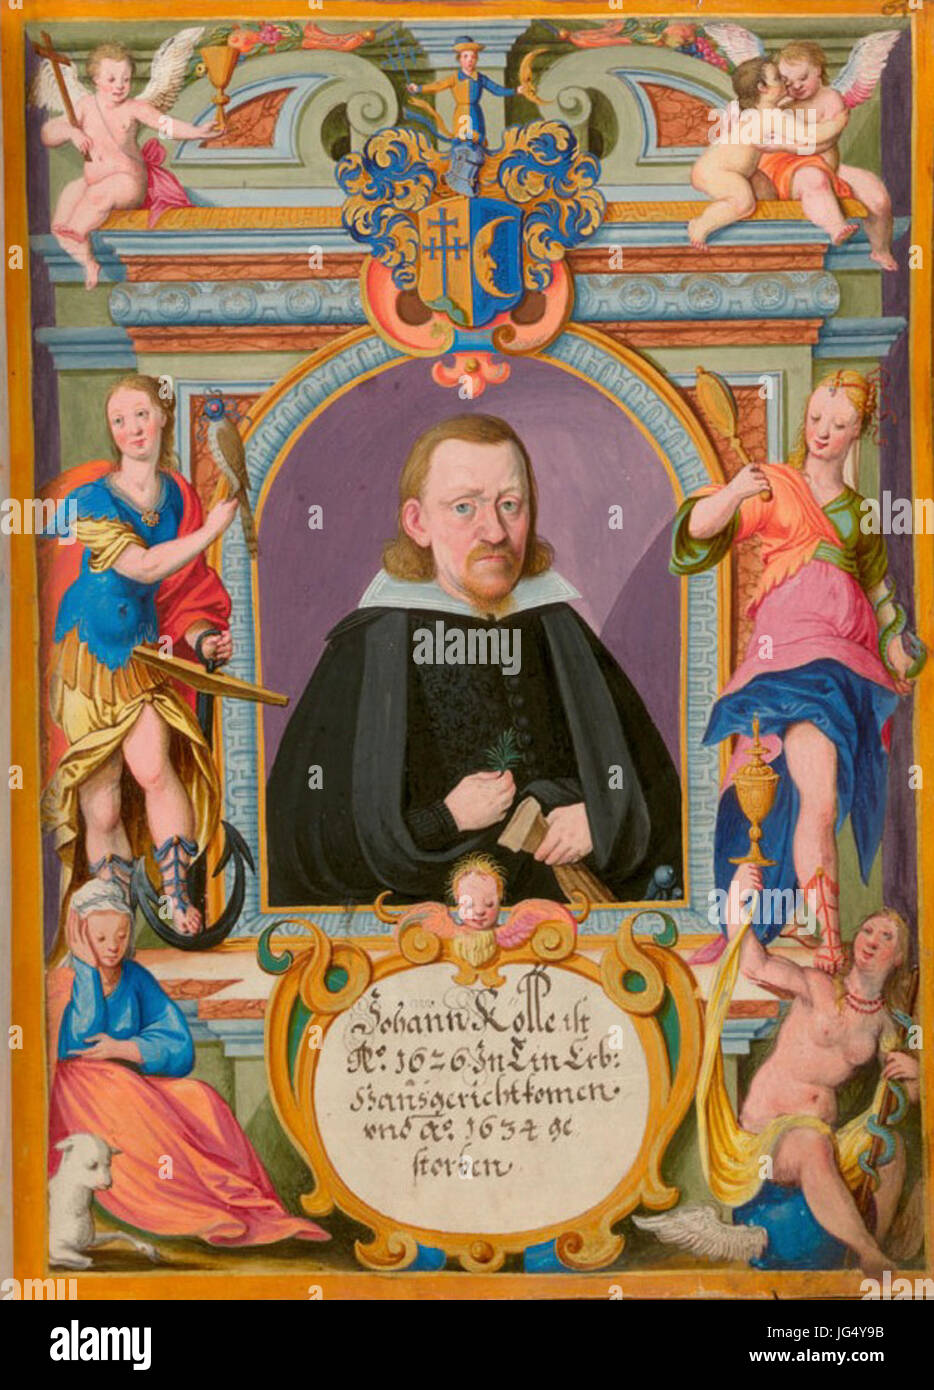 Johann Kölle ist
Aº. 1626. In Ein Erb:
Hansgericht komen
vnd Aº. 1634 ge
storben.
alamy stock photo
JG4Y9B
www.alamy.com